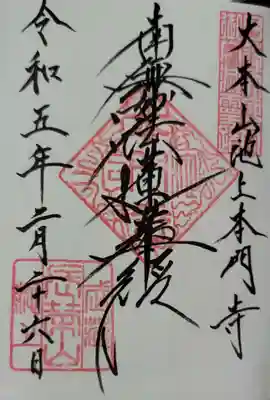 大本山池上本門寺
南無妙法蓮華経
令和五年二月二十六日